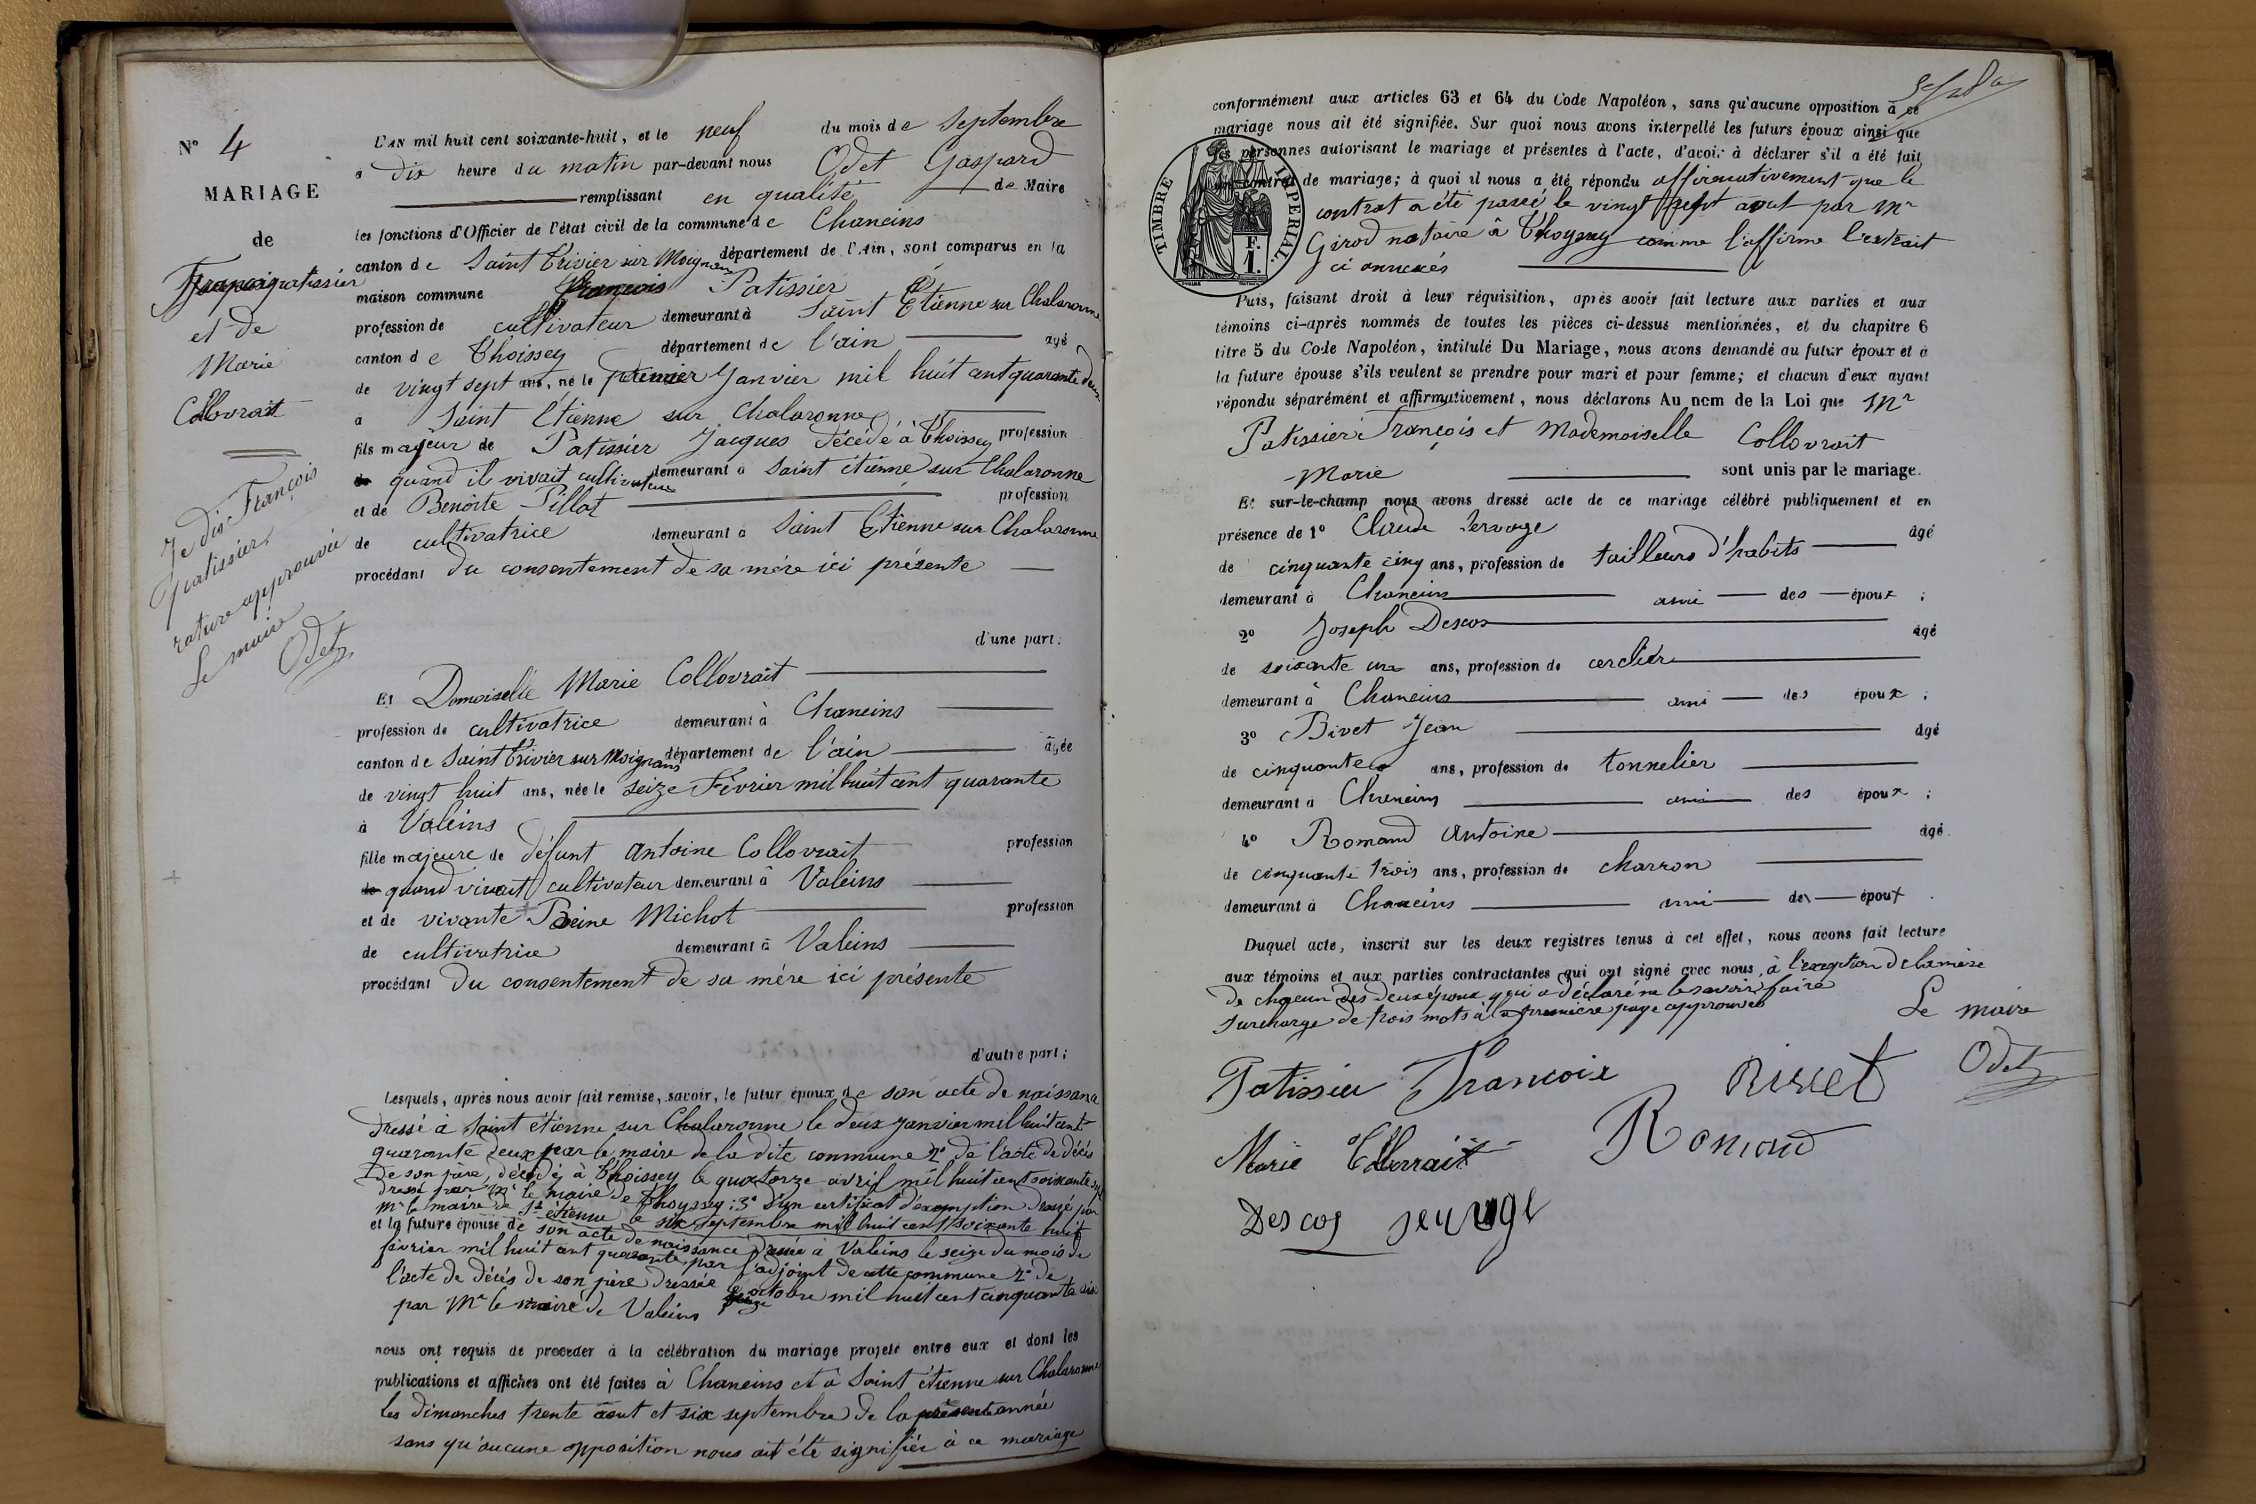 N° 4
MARIAGE
de
François patissier
et de
Marie
Collovrait
Je dis François
patissier
rature approuvée
Le maire
Odet
L'AN mil huit cent soixante-huit, et le neuf du mois de Septembre
à dix heure du matin par-devant nous Odet Gaspard
remplissant en qualité de Maire
les fonctions d'Officier de l'état civil de la commune de Chaneins
canton de Saint Trivier sur Moignans département de l'Ain, sont comparus en la
maison commune François Patissier
profession de cultivateur demeurant à Saint Etienne sur Chalaronne
canton de Thoissey département de l'ain âgé
de vingt sept ans, né le premier Janvier mil huit cent quarante deux
à Saint Etienne sur Chalaronne
fils majeur de Patissier Jacques décédé à Thoissey profession
de quand il vivait cultivateur demeurant à Saint étienne sur Chalaronne
et de Benoite Pillot profession
de cultivatrice demeurant à Saint Etienne sur Chalaronne
procédant du consentement de sa mère ici présente
d'une part;
Et Demoiselle Marie Collovrait
profession de cultivatrice demeurant à Chaneins
canton de Saint Trivier sur Moignans département de l'ain âgée
de vingt huit ans, née le seize Février mil huit cent quarante
à Valeins
fille majeure de défunt Antoine Collovrait profession
de quand vivait cultivateur demeurant à Valeins
et de vivante Reine Michot profession
de cultivatrice demeurant à Valeins
procédant du consentement de sa mère ici présente
d'autre part;
Lesquels, après nous avoir fait remise, savoir, le futur époux de son acte de naissance
dressé à Saint étienne sur Chalaronne le deux Janvier mil huit cent
quarante deux par le maire de la dite commune 2° de l'acte de décès
de son père, décédé à Thoissey le quatorze avril mil huit cent soixante
dressé par Mr le maire de Thoyssey; 3° d'un certificat d'exemption dressé par
Mr le maire de St étienne le six septembre mil huit cent soixante huit
et la future épouse de son acte de naissance dressé à Valeins le seize du mois de
février mil huit cent quarante par l'adjoint de cette commune 2° de
l'acte de décès de son père dressée le octobre mil huit cent cinquante six
par Mr le maire de Valeins
nous ont requis de procéder à la célébration du mariage projeté entre eux et dont les
publications et affiches ont été faites à Chaneins et à Saint étienne sur Chalaronne
les dimanches trente aout et six septembre de la présente année
sans qu'aucune opposition nous ait été signifiée à ce mariage
conformément aux articles 63 et 64 du Code Napoléon, sans qu'aucune opposition à ce
mariage nous ait été signifiée. Sur quoi nous avons interpellé les futurs époux ainsi que
les personnes autorisant le mariage et présentes à l'acte, d'avoir à déclarer s'il a été fait
un contrat de mariage; à quoi il nous a été répondu affirmativement que le
contrat a été passé le vingt sept aout par Mr
Girod notaire à Thoyssey comme l'affirme l'extrait
ci annexés
TIMBRE IMPERIAL
F.
1.
Puis, faisant droit à leur réquisition, après avoir fait lecture aux parties et aux
témoins ci-après nommés de toutes les pièces ci-dessus mentionnées, et du chapitre 6
titre 5 du Code Napoléon, intitulé Du Mariage, nous avons demandé au futur époux et à
la future épouse s'ils veulent se prendre pour mari et pour femme; et chacun d'eux ayant
répondu séparément et affirmativement, nous déclarons Au nom de la Loi que Mr
Patissier François et Mademoiselle Collovrait
Marie sont unis par le mariage.
Et sur-le-champ nous avons dressé acte de ce mariage célébré publiquement et en
présence de 1° Claude Servage âgé
de cinquante cinq ans, profession de tailleurs d'habits
demeurant à Chaneins ami des époux;
2° Joseph Descos âgé
de soixante un ans, profession de cerclier
demeurant à Chaneins ami des époux;
3° Bivet Jean âgé
de cinquante ans, profession de tonnelier
demeurant à Chaneins ami des époux;
4° Romand Antoine âgé
de cinquante trois ans, profession de charron
demeurant à Chaneins ami des époux.
Duquel acte, inscrit sur les deux registres tenus à cet effet, nous avons fait lecture
aux témoins et aux parties contractantes qui ont signé avec nous, à l'exception de la mère
de chacun des deux époux qui a déclaré ne le savoir faire
surcharge de trois mots à la première page approuvés
Le maire
Odet
Patissier Francoix
Marie Collovrait
Romand
Descos